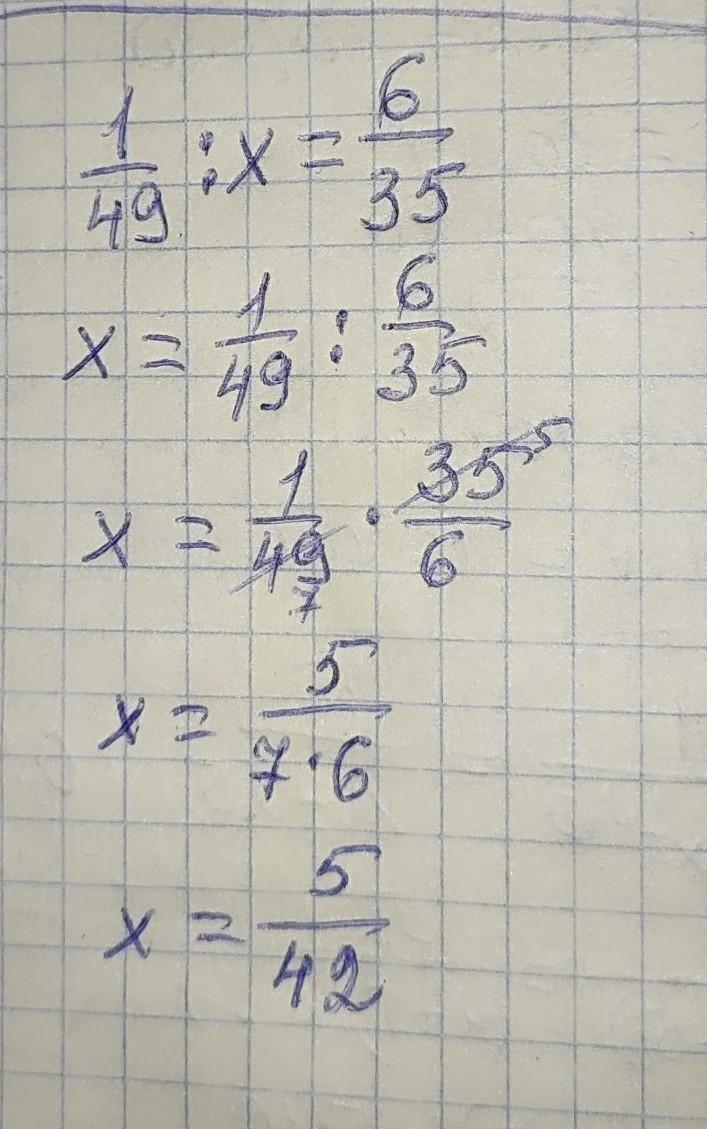 1/49 : x = 6/35
x = 1/49 : 6/35
x = 1/49 7 · 35 5/6
x = 5/7·6
x = 5/42